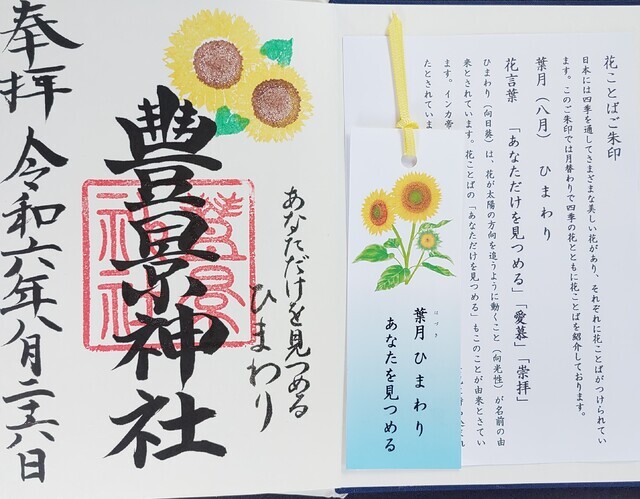 花ことばご朱印
日本には四季を通してさまざまな美しい花があり、それぞれに花ことばがつけられてい
ます。このご朱印では月替わりで四季の花とともに花ことばを紹介しております。
葉月（八月）　ひまわり
花言葉　「あなただけを見つめる」「愛慕」「崇拝」
ひまわり（向日葵）は、花が太陽の方向を追うように動くこと（向光性）が名前の由
来とされています。花ことばの「あなただけを見つめる」もこのことが由来とされてい
ます。インカ帝
たとされていま
はづき
葉月 ひまわり
あなたを見つめる
あなただけを見つめる
ひまわり
豊景神社
奉拝 令和六年八月二十六日